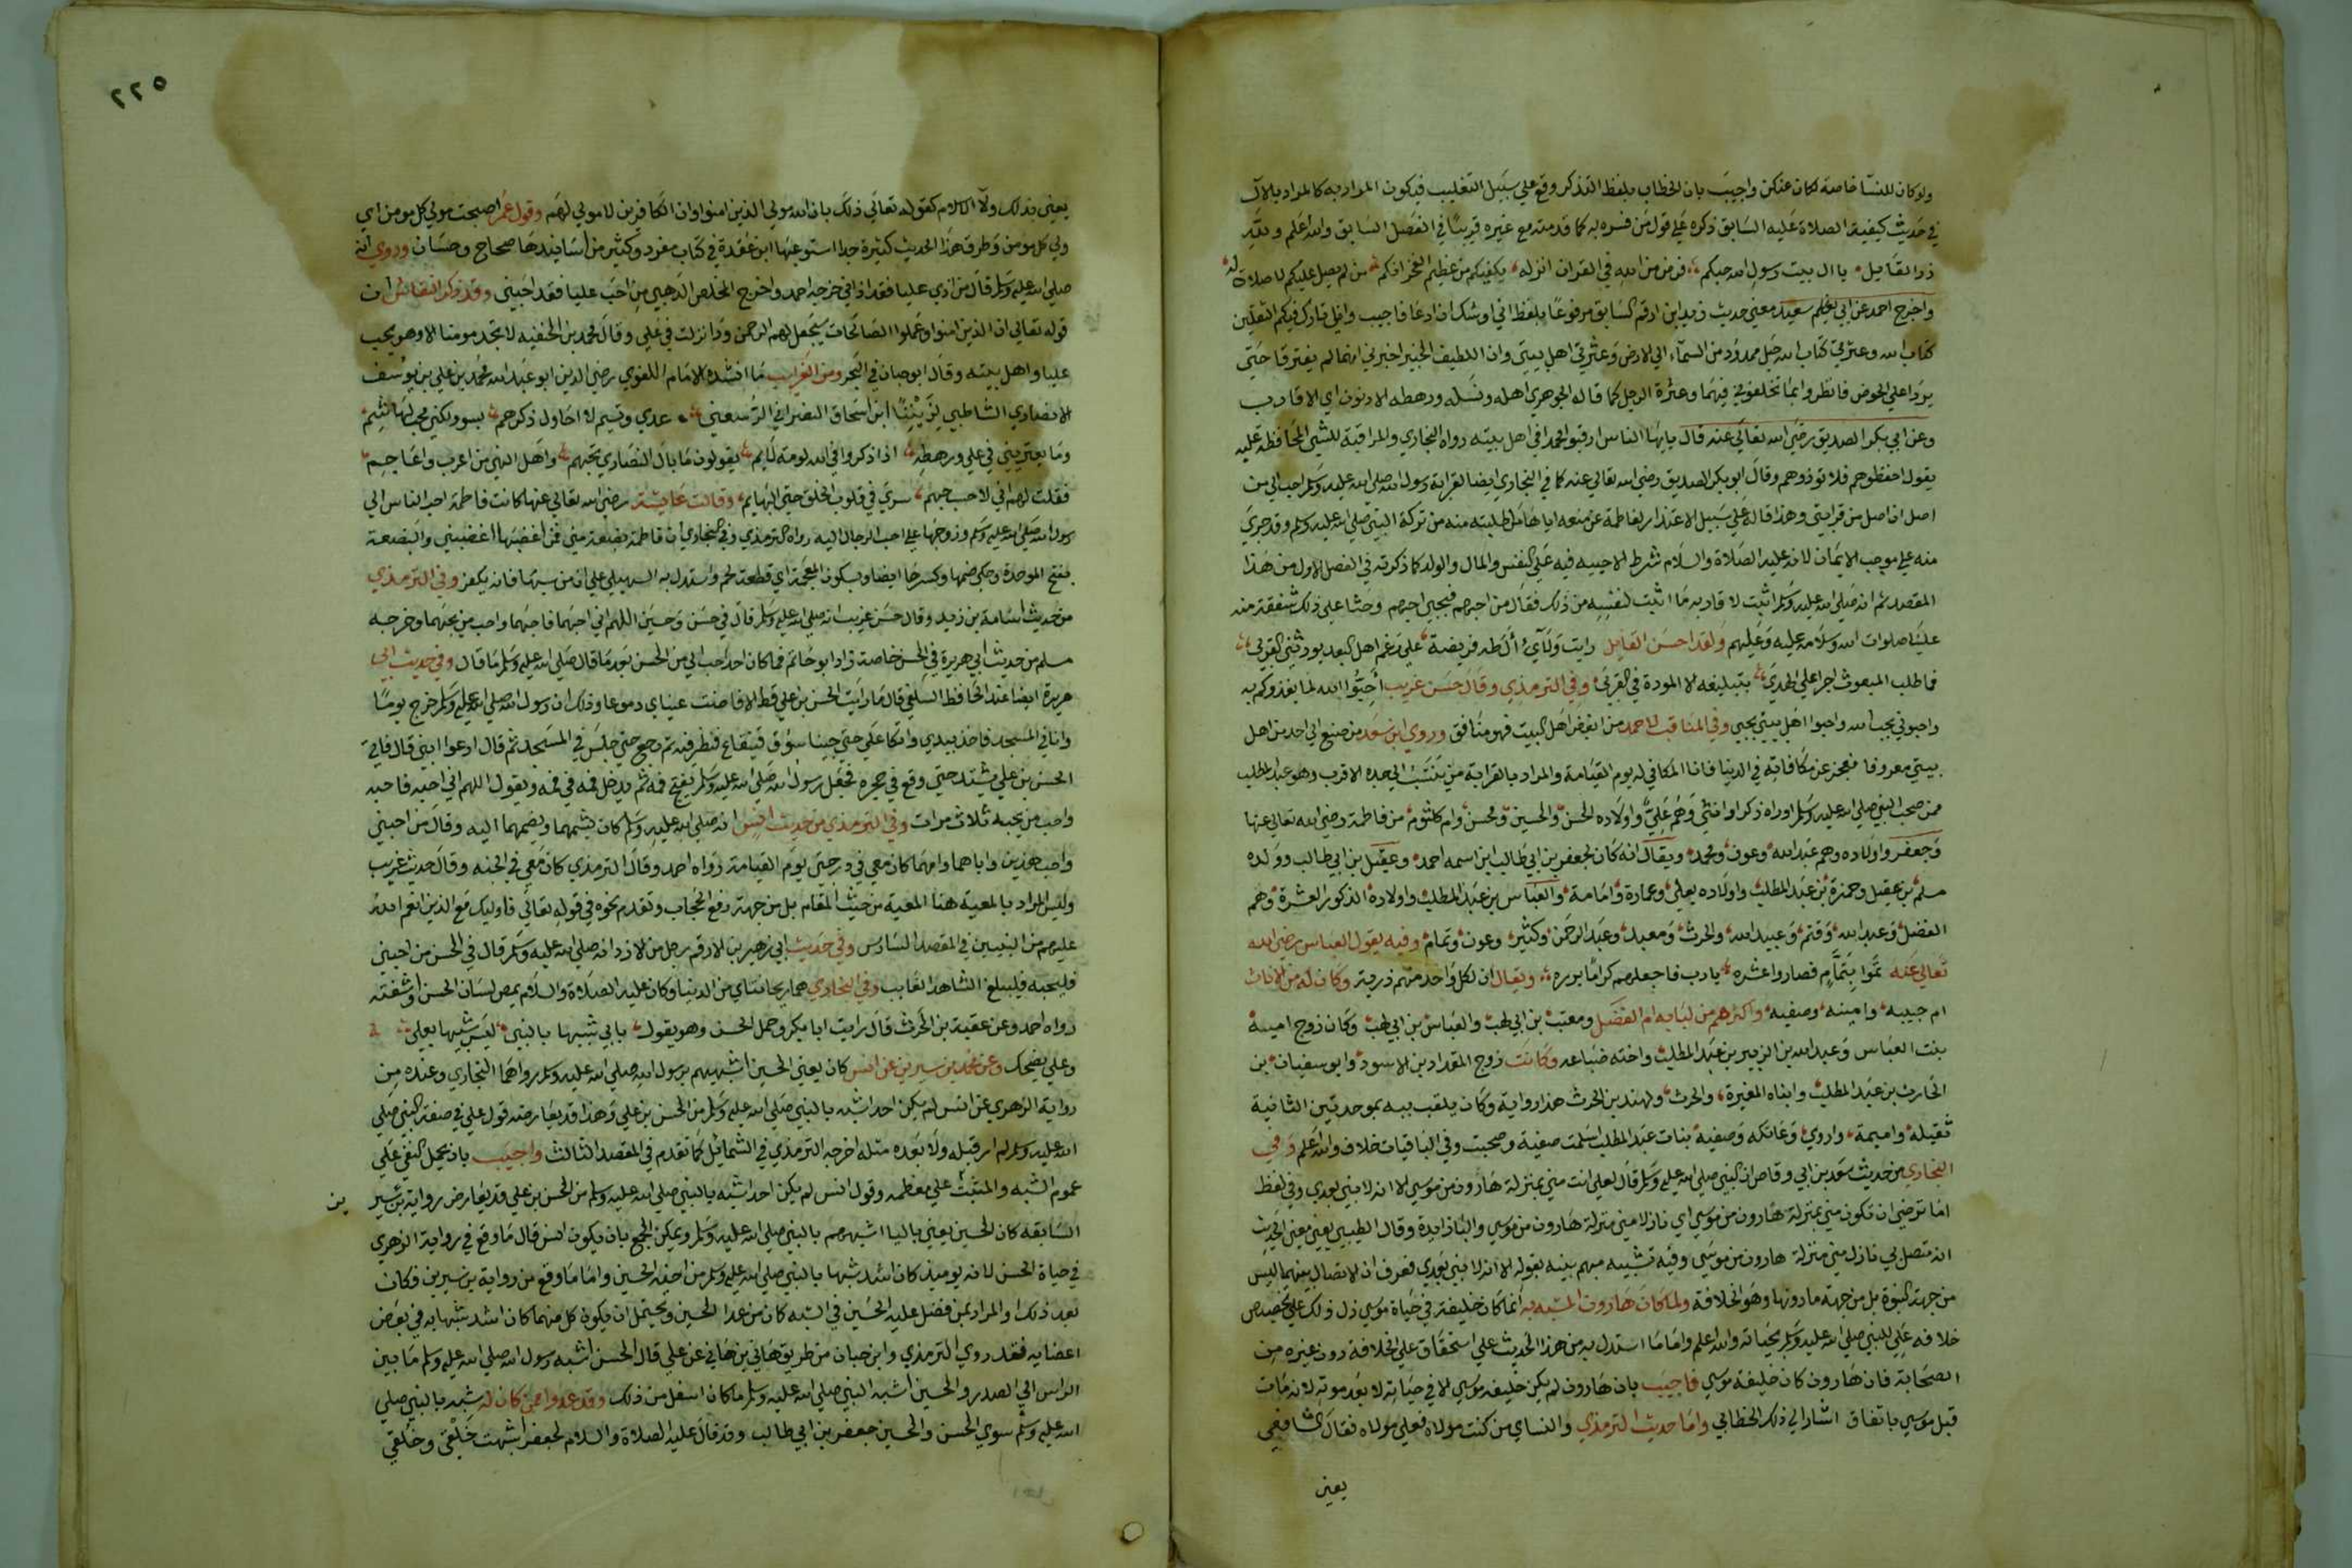 ولو كان للنسا خاصة لكان عنكن واجيب بان الخطاب بلفظ التذكر وقع علي سبيل التغليب فيكون المراد به كالمراد بالال
في حديث كيفية الصلاة عليه السابق ذكره علي قول من فسره به كما قدمته مع غيره قريبا في الفصل السابق والله اعلم ولله
در القايل يا ال بيت رسول الله حبكم فرض من الله في القران انزله يكفيكم من عظيم الفخر انكم من لم يصل عليكم لا صلاة له
واخرج احمد عن ابي سعيد معني حديث زيد ابن ارقم السابق مرفوعا بلفظ اني اوشك ان ادعا فاجيب واني تارك فيكم الثقلين
كتاب الله وعترتي كتاب الله حبل ممدود من السماء الي الارض وعترتي اهل بيتي وان اللطيف الخبير اخبرني انهما لم يفترقا حتي
يردا علي الحوض فانظروا بما تخلفوني فيهما وعترة الرجل كما قاله الجوهري اهله ونسله ورهطه الادنون اي الاقارب
وعن ابي بكر الصديق رضي الله تعالي عنه قال يايها الناس ارقبوا محمدا في اهل بيته رواه البخاري والمراقبة للشي المحافظة عليه
يقول احفظوهم فلا توذوهم وقال ابو بكر الصديق رضي الله تعالي عنه كما في البخاري ايضا لقرابة رسول الله صلي الله عليه وسلم احب الي من
اصل ان اصل من قرابتي وهذا قاله علي سبيل الاعتذار لفاطمة عن منعه اياها ما طلبته منه من تركة النبي صلي الله عليه وسلم وقد جري
منه علي موجب الايمان لانه عليه الصلاة والسلام شرط الاحبيه فيه علي النفس والمال والولد كما ذكرته في الفصل الاول من هذا
المقصد ثم انه صلي الله عليه وسلم اثبت لاقاربه ما اثبت لنفسه من ذلك فقال من احبهم فبحبي احبهم وحثا علي ذلك شفقة منه
علينا صلوات الله وسلامه عليه وعليهم ولقد احسن القايل رايت ولآيء ال طه فريضة علي رغم اهل البعد يورثني القربي
فما طلب المبعوث اجرا علي الهدي بتبليغه الا المودة في القربي وفي الترمذي وقال حسن غريب احبوا الله لما يغذوكم به
واحبوني بحب الله واحبوا اهل بيتي بحبي وفي المناقب لاحمد من ابغض اهل البيت فهو منافق وروي ابن سعد من صنع الي احد من اهل
بيتي معروفا فعجز عن مكافاته في الدنيا فانا المكافي له يوم القيامة والمراد بالقرابة من ينتسب الي جده الاقرب وهو عبد المطلب
ممن صحب النبي صلي الله عليه وسلم او راه ذكر او انثي وهم علي واولاده الحسن والحسين ومحسن وام كلثوم من فاطمة رضي الله تعالي عنها
وجعفر واولاده وهم عبد الله وعون ومحمد ويقال انه كان لجعفر بن ابي طالب ابن اسمه احمد وعقيل بن ابي طالب وولده
مسلم بن عقيل وحمزة بن عبد المطلب واولاده يعلي وعمارة وامامة والعباس بن عبد المطلب واولاده الذكور العشرة وهم
الفضل وعبد الله وقثم وعبيد الله والحرث ومعبد وعبد الرحمن وكثير وعون وتمام وفيه يقول العباس رضي الله
تعالي عنه تموا بتمام فصاروا عشره يارب فاجعلهم كراما برره ويقال ان لكل واحد منهم ذرية وكان له من الاناث
ام حبيبه وامينه وصفيه واكثرهم من لبابه ام الفضل ومعتب بن ابي لهب والعباس بن ابي لهب وكان زوج امينة
بنت العباس وعبد الله بن الزبير بن عبد المطلب واخته ضباعه وكانت زوج المقداد بن الاسود وابو سفيان بن
الحارث بن عبد المطلب وابناه المغيرة والحرث ولهند بن الحرث هذا رواية وكان يلقب ببه بموحدتين الثانية
ثقيله واميمة واروي وعاتكه وصفيه بنات عبد المطلب اسلمت صفية وصحبت وفي الباقيات خلاف والله اعلم وفي
البخاري من حديث سعد بن ابي وقاص ان النبي صلي الله عليه وسلم قال لعلي انت مني بمنزلة هارون من موسي الا انه لا نبي بعدي وفي لفظ
اما ترضي ان تكون مني بمنزلة هارون من موسي اي نازلا مني منزلة هارون من موسي والبا زايدة وقال الطيبي يعني معني الحديث
انه متصل بي نازل مني منزلة هارون من موسي وفيه تشبيه مبهم بينه بقوله الا انه لا نبي بعدي فعرف ان الاتصال بينهما ليس
من جهة النبوة بل من جهة ما دونها وهو الخلافة ولما كان هارون المشبه به انما كان خليفة في حياة موسي دل ذلك علي تخصيص
خلافه علي للنبي صلي الله عليه وسلم بحياته والله اعلم واما ما استدل به من هذا الحديث علي استحقاق علي الخلافة دون غيره من
الصحابة فان هارون كان خليفة موسي فاجيب بان هارون لم يكن خليفه موسي الا في حياته لا بعد موته لانه مات
قبل موسي باتفاق اشار الي ذلك الخطابي واما حديث الترمذي والنساي من كنت مولاه فعلي مولاه فقال الشافعي
يعني
٢٢٥
يعني بذلك ولآ الاسلام كقوله تعالي ذلك بان الله مولي الذين امنوا وان الكافرين لا مولي لهم وقول عمر اصبحت مولي كل مومن اي
ولي كل مومن وطرق هذا الحديث كثيرة جدا استوعبها ابن عقدة في كتاب مفرد وكثير من اسانيدها صحاح وحسان وروي انه
صلي الله عليه وسلم قال من اذي عليا فقد اذاني خرجه احمد واخرج المخلص الذهبي من احب عليا فقد احبني وقد ذكر النقاش ان
قوله تعالي ان الذين امنوا وعملوا الصالحات سيجعل لهم الرحمن ودا نزلت في علي وقال محمد بن الحنفيه لا تجد مومنا الا وهو يحب
عليا واهل بيته وقال ابو حيان في البحر ومن الغرايب ما انشده الامام اللغوي رضي الدين ابو عبد الله محمد بن علي بن يوسف
الانصاري الشاطبي لزبينا ابن اسحاق النصراني الرسعني عدي وتيم لا احاول ذكرهم بسوء ولكني محب لهاشم
وما يعتريني في علي ورهطه اذا ذكروا في الله لومة لايم يقولون ما بال النصاري تحبهم واهل النهي من اعرب واعاجم
فقلت لهم اني لاحسب حبهم سري في قلوب الخلق حتي البهايم وقالت عايشة رضي الله تعالي عنها كانت فاطمة احب الناس الي
رسول الله صلي الله عليه وسلم وزوجها علي احب الرجال اليه رواه الترمذي وفي البخاري ان فاطمة بضعة مني فمن اغضبها اغضبني والبضعة
بفتح الموحدة وحكي ضمها وكسرها ايضا وبسكون المعجمة اي قطعة لحم واستدل به السهيلي علي ان من سبها فانه يكفر وفي الترمذي
من حديث اسامة بن زيد وقال حسن غريب انه صلي الله عليه وسلم قال في حسن وحسين اللهم اني احبهما فاحبهما واحب من يحبهما وخرجه
مسلم من حديث ابي هريرة في الحسن خاصة زاد ابو حاتم فما كان احد احب الي من الحسن بعد ما قال صلي الله عليه وسلم ما قال وفي حديث ابي
هريرة ايضا عند الحافظ السلفي قال ما رايت الحسن بن علي قط الا فاضت عيناي دموعا وذلك ان رسول الله صلي الله عليه وسلم خرج يوما
وانا في المسجد فاخذ بيدي واتكا علي حتي جينا سوق قينقاع فنظر فيه ثم رجع حتي جلس في المسجد ثم قال ادعوا ابني قال فاتي
الحسن بن علي يشتد حتي وقع في حجره فجعل رسول الله صلي الله عليه وسلم يفتح فمه ثم يدخل فمه في فمه ويقول اللهم اني احبه فاحبه
واحب من يحبه ثلاث مرات وفي الترمذي من حديث انس انه صلي الله عليه وسلم كان يشمهما ويضمهما اليه وقال من احبني
واحب هذين واباهما وامهما كان معي في درجتي يوم القيامة رواه احمد وقال الترمذي كان معي في الجنه وقال حديث غريب
وليس المراد بالمعية هنا المعية من حيث المقام بل من جهة رفع الحجاب وتقدم نحوه في قوله تعالي فاوليك مع الذين انعم الله
عليهم من النبيين في المقصد السادس وفي حديث ابي زهير بن الارقم رجل من الازد انه صلي الله عليه وسلم قال في الحسن من احبني
فليحبه فليبلغ الشاهد الغايب وفي البخاري هما ريحانتاي من الدنيا وكان عليه الصلاة والسلام يمص لسان الحسن او شفته
رواه احمد وعن عقبة بن الحرث قال رايت ابا بكر وحمل الحسن وهو يقول بابي شبيها بالنبي ليس شبيها بعلي
وعلي يضحك وعن محمد بن سيرين عن انس كان يعني الحسين اشبههم برسول الله صلي الله عليه وسلم رواهما البخاري وعنده من
رواية الزهري عن انس لم يكن احد اشبه بالنبي صلي الله عليه وسلم من الحسن بن علي وهذا قد يعارضه قول علي في صفة النبي صلي
الله عليه وسلم لم ار قبله ولا بعده مثله اخرجه الترمذي في الشمائل كما تقدم في المقصد الثالث واجيب بان يحمل النفي علي
عموم الشبه والمثبت علي معظمه وقول انس لم يكن احد اشبه بالنبي صلي الله عليه وسلم من الحسن بن علي قد يعارض رواية بن سير
ين
السابقه كان الحسين يعني بالياا اشبههم بالنبي صلي الله عليه وسلم ويمكن الجمع بان يكون انس قال ما وقع في رواية الزهري
في حياة الحسن لانه يوميذ كان اشد شبها بالنبي صلي الله عليه وسلم من اخيه الحسين واما ما وقع من رواية بن سيرين فكان
بعد ذلك او المراد بمن فضل عليه الحسين في الشبه كان من عدا الحسين ويحتمل ان يكون كل منهما كان اشد شبها به في بعض
اعضايه فقد روي الترمذي وابن حبان من طريق هاني بن هاني عن علي قال الحسن اشبه رسول الله صلي الله عليه وسلم ما بين
الراس الي الصدر والحسين اشبه النبي صلي الله عليه وسلم ما كان اسفل من ذلك وقد عدوا من كان له شبه بالنبي صلي
الله عليه وسلم سوي الحسن والحسين جعفر بن ابي طالب وقد قال عليه الصلاة والسلام لجعفر اشبهت خلقي وخلقي